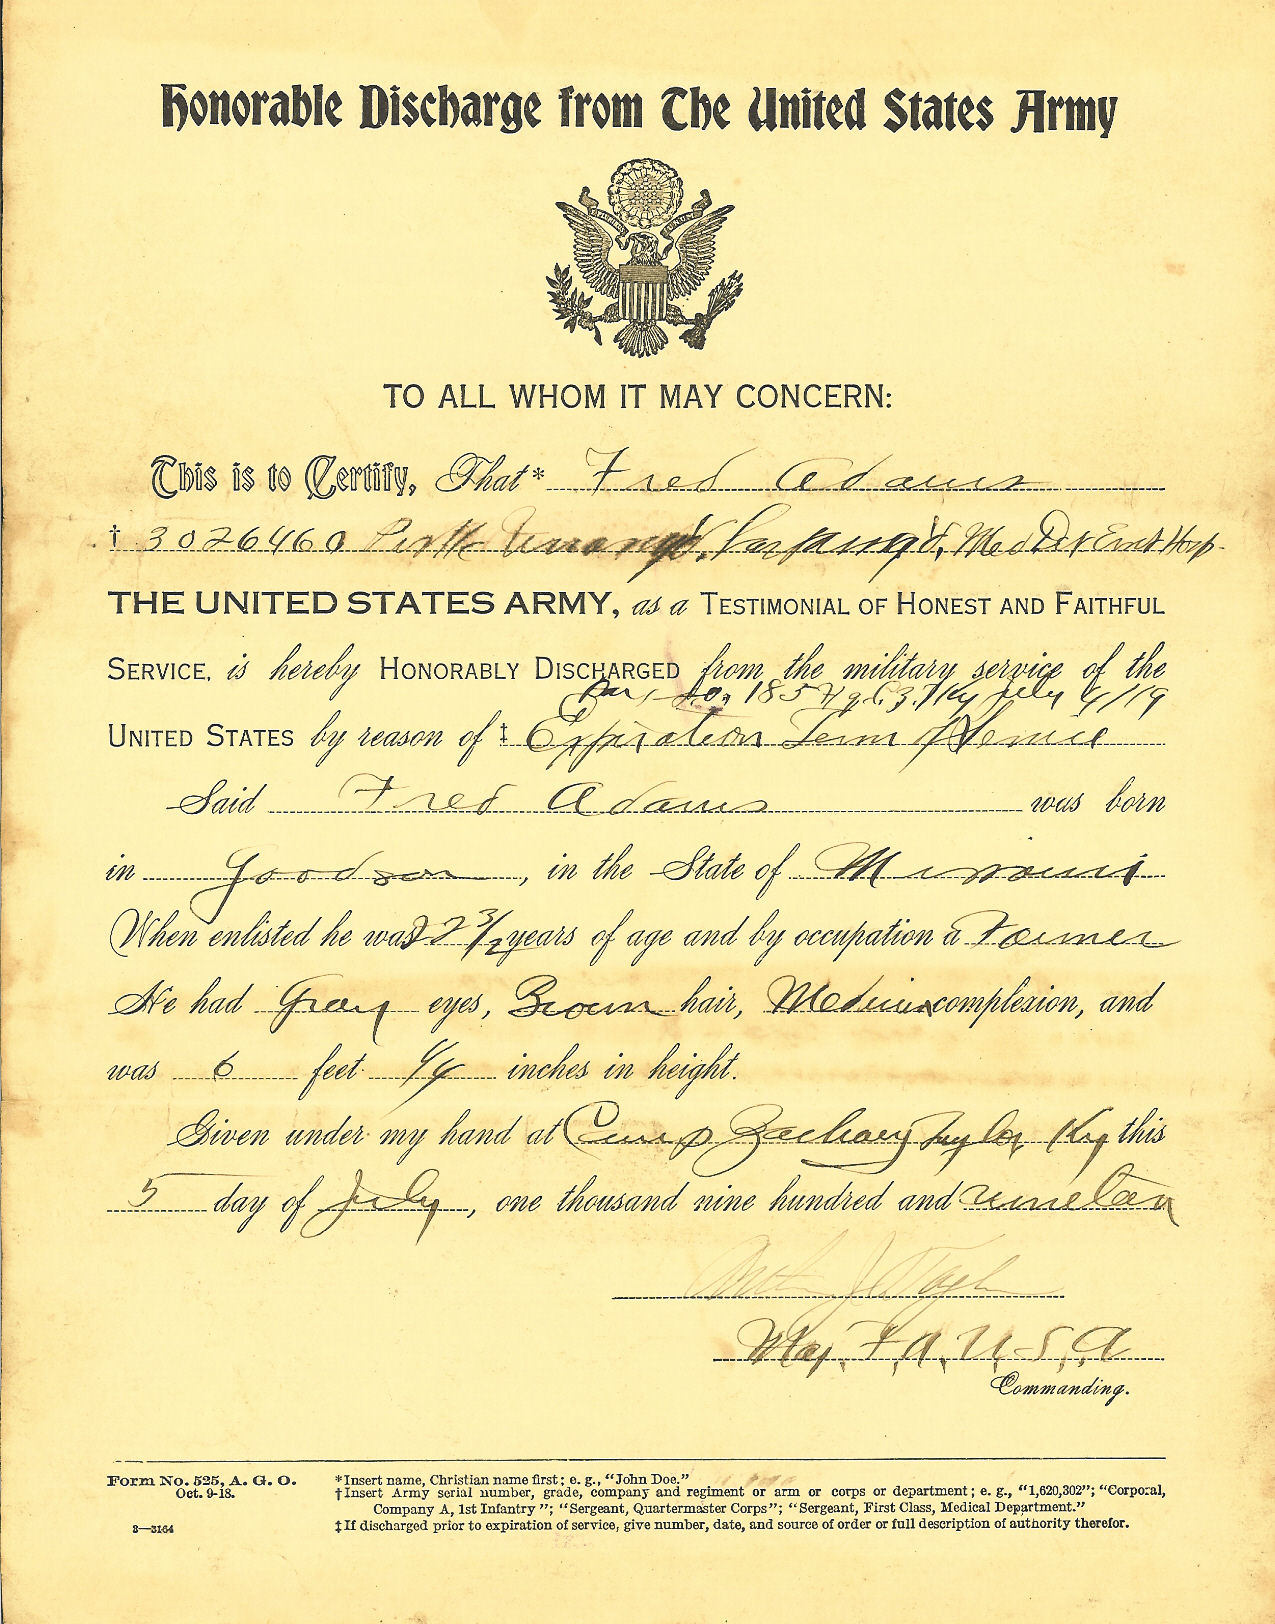 Honorable Discharge from The United States Army
TO ALL WHOM IT MAY CONCERN:
This is to Certify, That* Fred Adams
† 3026460 Med Det Hosp
THE UNITED STATES ARMY, as a TESTIMONIAL OF HONEST AND FAITHFUL
SERVICE, is hereby HONORABLY DISCHARGED from the military service of the
185 Ky July 4/19
UNITED STATES by reason of ‡ Expiration Term of Service
Said Fred Adams was born
in Goodson, in the State of Missouri
When enlisted he was 22 3/12 years of age and by occupation a Farmer
He had Gray eyes, Brown hair, Medium complexion, and
was 6 feet 1/4 inches in height.
Given under my hand at Camp Zachary Taylor Ky this
5 day of July, one thousand nine hundred and nineteen
Maj. F.A. U.S.A
Commanding.
Form No. 525, A. G. O.
Oct. 9-18.
3—3164
*Insert name, Christian name first; e. g., "John Doe."
†Insert Army serial number, grade, company and regiment or arm or corps or department; e. g., "1,620,302"; "Corporal,
Company A, 1st Infantry"; "Sergeant, Quartermaster Corps"; "Sergeant, First Class, Medical Department."
‡If discharged prior to expiration of service, give number, date, and source of order or full description of authority therefor.